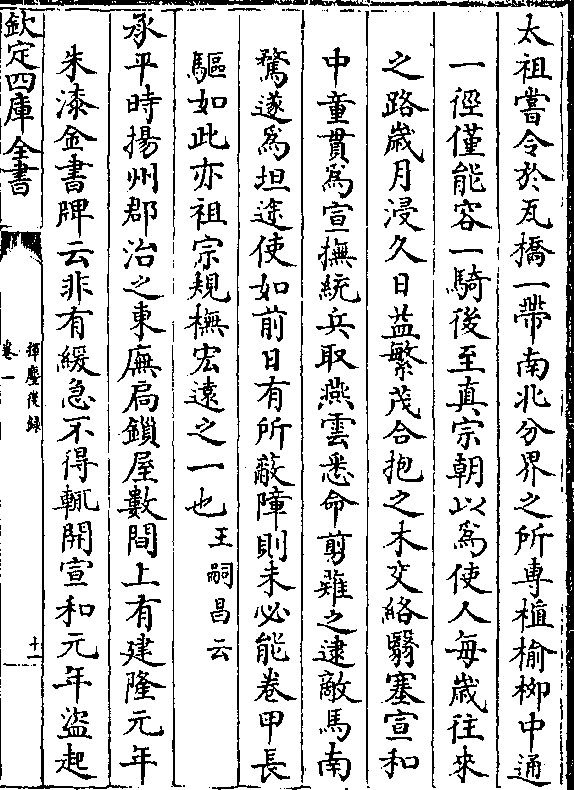 太祖嘗令於瓦橋一帶南北分界之所專植榆柳中通
一徑僅能容一騎後至真宗朝以為使人每歲往來
之路歲月浸久日益繁茂合抱之木交絡翳塞宣和
中童貫為宣撫統兵取燕雲悉命剪薙之逮敵馬南
騖遂為坦途使如前日有所蔽障則未必能卷甲長
驅如此亦祖宗規橅宏遠之一也王嗣昌云
承平時揚州郡治之東廡扄鎖屋數間上有建隆元年
朱漆金書牌云非有緩急不得輒開宣和元年盜起
欽定四庫全書
揮麈後錄
卷一
十一